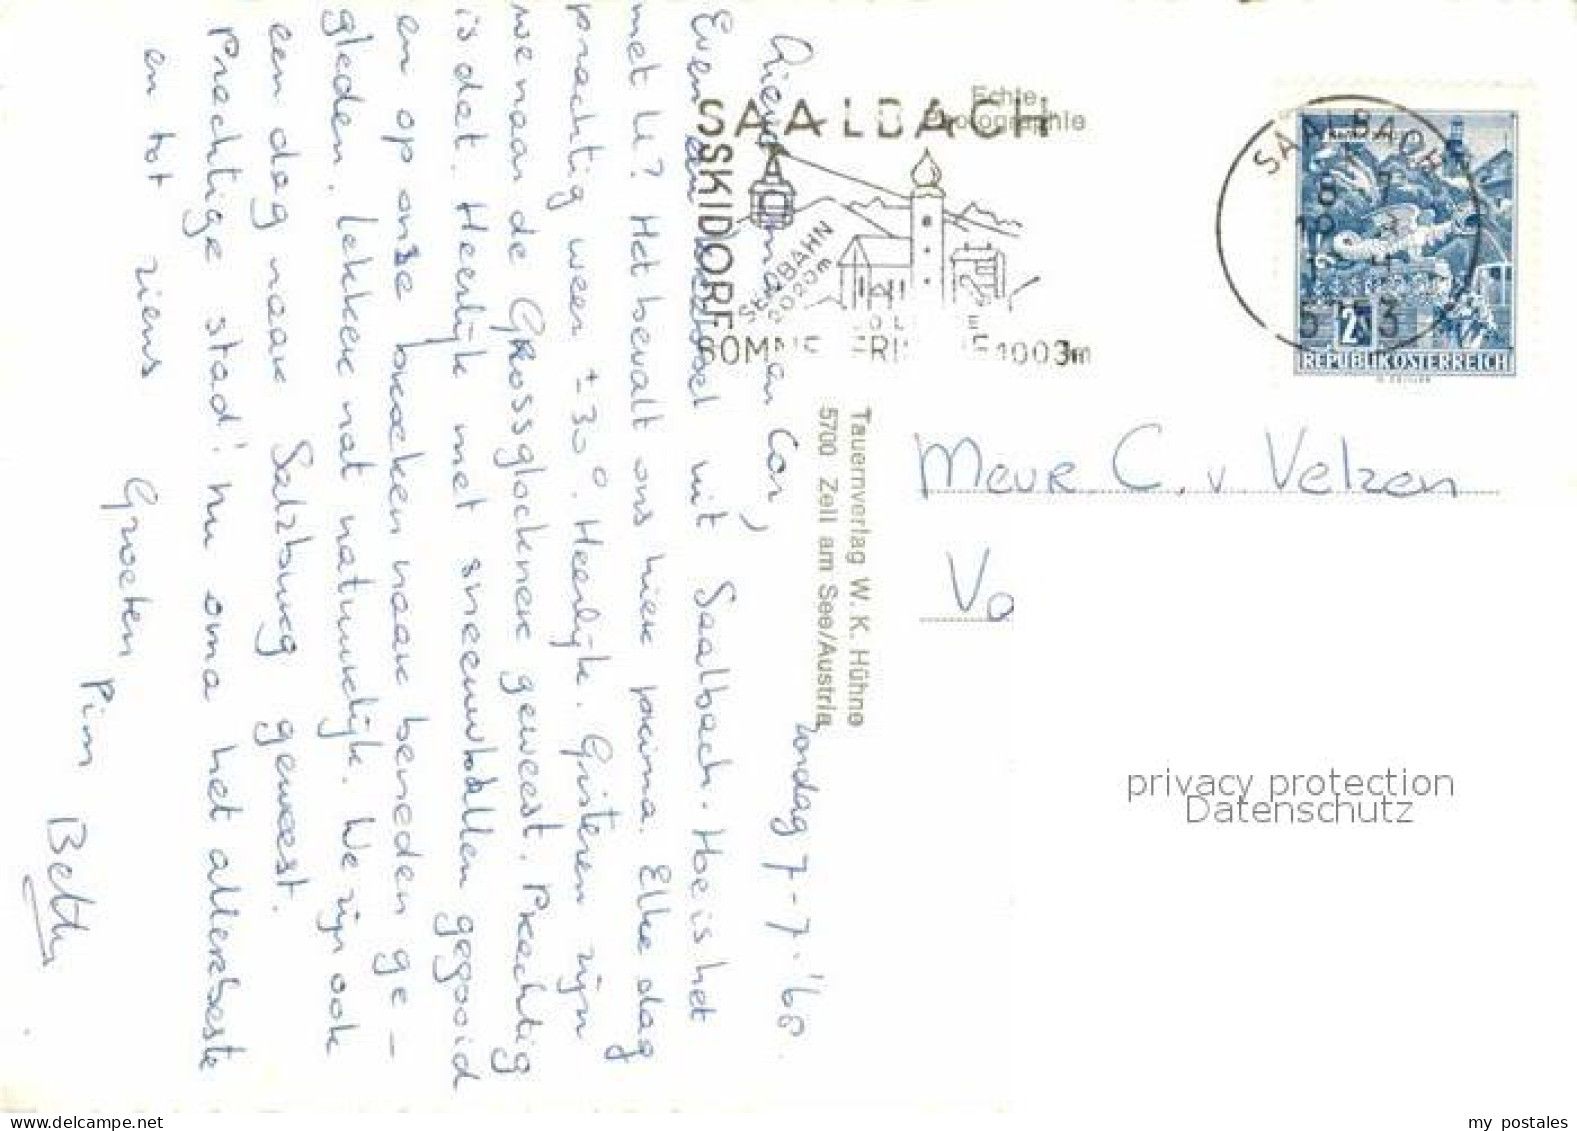 zondag 7-7-'68.
Lieve oma en Cor,
Even een krabbel uit Saalbach. Hoe is het
met U? Het bevalt ons hier prima. Elke dag
prachtig weer ± 30°. Heerlijk. Gisteren zijn
we naar de Grossglockner geweest. Prachtig
is dat. Heerlijk met sneeuwballen gegooid
en op onze broeken naar beneden ge-
gleden. Lekker nat natuurlijk. We zijn ook
een dag naar Salzburg geweest.
Prachtige stad! Nu oma het allerbeste
en tot ziens
Groeten Pim
Betty
Echte
Photographie
SAALBACH
SKIDORF
SEILBAHN
2020m
1003m
Tauernverlag W. K. Hühne
5700 Zell am See/Austria
SAALBACH
5753
2
REPUBLIK ÖSTERREICH
Mevr. C. v. Velzen
privacy protection
Datenschutz
my postales